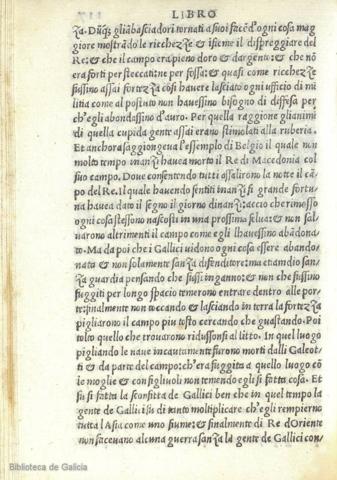 LIBRO
za. Dũqʒ gliãbasciadori tornati a suoi facẽd'ogni cosa mag
giore mostrãdo le ricchezze & isieme il dispreggiare del
Re: & che il campo era pieno doro & dargento: & che nõ
era forti per steccati: ne per fossa: & quasi come ricchezze
fussino assai fortezza cosi havere lasciato ogni ufficio di mi
litia come al postuto non havessino bisogno di diffesa per
ch'egli abondassino d'auro. Per quella raggione gli animi
di quella cupida gente assai erano stimolati alla ruberia.
Et anchora saggiongeva l'essempio di Belgio il quale non
molto tempo inanzi havea morto il Re di Macedonia col
suo campo. Dove consentendo tutti assalirono la notte il cã
po del Re. Il quale havendo sentiti inanzi si grande fortu
na havea dato il segno il giorno dinanzi: accio che rimosso
ogni cosa stessono nascosti in una prossima selva: & non sal
varono altrimenti il campo come egli lhavessino abãdona
to. Ma da poi che i Gallici vidono ogni cosa essere abando
nata & non solamente sanza difenditore: ma etiamdio san
za guardia pensando che fussi inganno: & non che fussino
fuggiti per longo spacio temerono entrare dentro alle por
te: finalmente non toccando & lasciando in terra la fortezza
pigliarono il campo piu tosto cercando che guastando. Poi
tolto quello che trovarono ridussonsi al litto. In quel luogo
pigliando le nave incautamente furono morti dalli Galeot
ti & da parte del campo: ch'era fuggita a quello luogo cõ
le moglie & con figlivoli non temendo egli si fatta cosa. Et
fu si fatta la sconfitta de Gallici ben che in quel tempo la
gente de Galli si su di tanto moltiplicare ch'egli rempierno
tutta l Asia come uno fiume: & finalmente di Re dOriente
non facevano alcuna guerra sanza la gente de Gallici con/
Biblioteca de Galicia